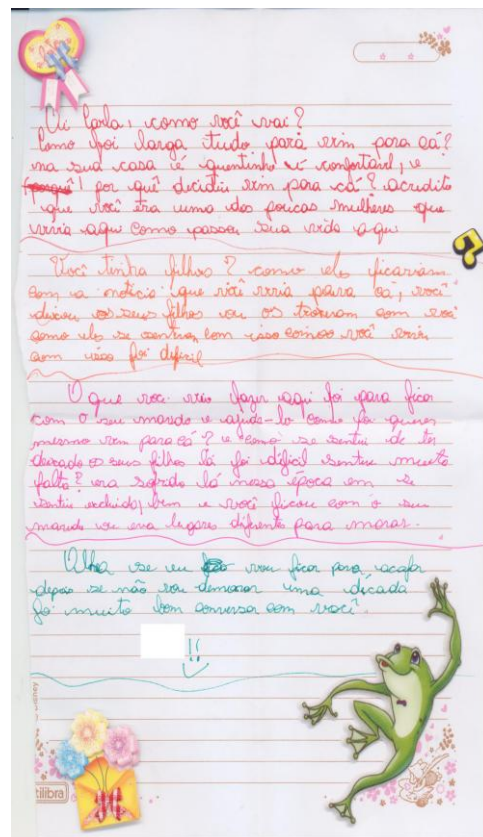 Oi Carla, como você vai?
Como foi larga tudo para vim para cá?
na sua casa é quentinho é confortavel, e
por quê decidiu vim para cá? acredito
que você era uma das poucas mulheres que
viria aqui como passou sua vida aqui
Você tinha filhos? como eles ficariam
com a notícia que você viria para cá, você
deixou os seus filhos ou os trouxeram com você
como eles se sentiram com isso
com isso foi dificil
O que você veio fazer aqui foi para ficar
com o seu marido e ajuda-lo como foi querer
mesmo vim para cá? e como se sentiu de ter
deixado os seus filhos lá foi dificil sentiu muita
falta? era sofrido lá nessa época em se
sentiu excluida, bem e você ficou com o seu
marido ou era lugares diferente para morar.
Olha se eu vou ficar para
depois se não vou demorar uma década
foi muito bom conversar com você.
!!
tilibra